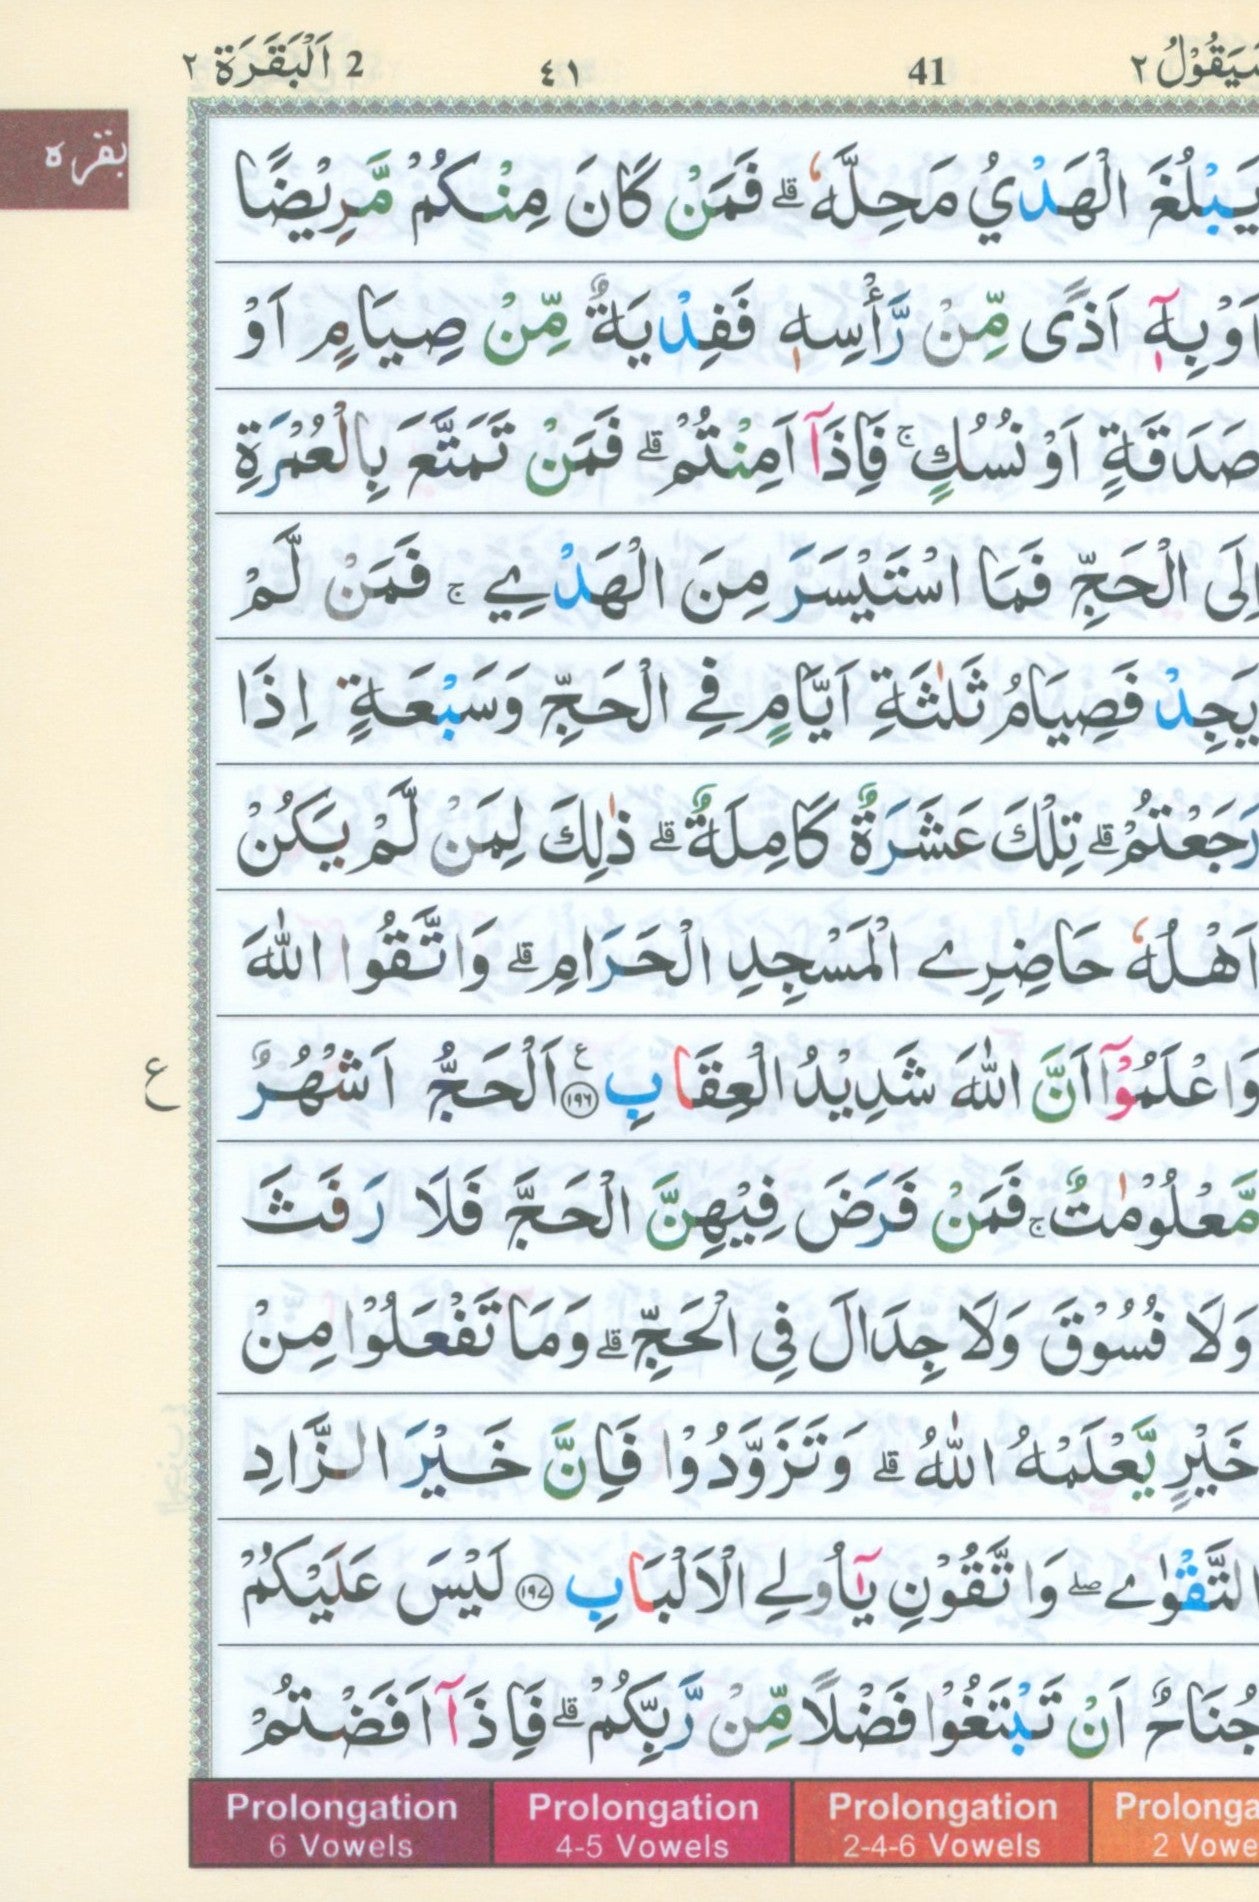 سَيَقُوْلُ ٢ 41 ٤١ 2 اَلْبَقَرَة ٢
بقره
يَبْلُغَ الْهَدْيُ مَحِلَّهٗ ؕ فَمَنْ كَانَ مِنْكُمْ مَّرِيْضًا
اَوْ بِهٖۤ اَذًى مِّنْ رَّاْسِهٖ فَفِدْيَةٌ مِّنْ صِيَامٍ اَوْ
صَدَقَةٍ اَوْ نُسُكٍ ۚ فَاِذَاۤ اَمِنْتُمْ ۥ فَمَنْ تَمَتَّعَ بِالْعُمْرَةِ
اِلَى الْحَجِّ فَمَا اسْتَيْسَرَ مِنَ الْهَدْيِ ۚ فَمَنْ لَّمْ
يَجِدْ فَصِيَامُ ثَلٰثَةِ اَيَّامٍ فِي الْحَجِّ وَسَبْعَةٍ اِذَا
رَجَعْتُمْ ؕ تِلْكَ عَشَرَةٌ كَامِلَةٌ ؕ ذٰلِكَ لِمَنْ لَّمْ يَكُنْ
اَهْلُهٗ حَاضِرِي الْمَسْجِدِ الْحَرَامِ ؕ وَاتَّقُوا اللّٰهَ
وَاعْلَمُوْۤا اَنَّ اللّٰهَ شَدِيْدُ الْعِقَابِ ع ١٩٦ اَلْحَجُّ اَشْهُرٌ
ع
مَّعْلُوْمٰتٌ ۚ فَمَنْ فَرَضَ فِيْهِنَّ الْحَجَّ فَلَا رَفَثَ
وَلَا فُسُوْقَ وَلَا جِدَالَ فِي الْحَجِّ ؕ وَمَا تَفْعَلُوْا مِنْ
خَيْرٍ يَّعْلَمْهُ اللّٰهُ ؕ وَتَزَوَّدُوْا فَاِنَّ خَيْرَ الزَّادِ
التَّقْوٰى ۖ وَاتَّقُوْنِ يٰۤاُولِي الْاَلْبَابِ ١٩٧ لَيْسَ عَلَيْكُمْ
جُنَاحٌ اَنْ تَبْتَغُوْا فَضْلًا مِّنْ رَّبِّكُمْ ؕ فَاِذَاۤ اَفَضْتُمْ
Prolongation Prolongation Prolongation Prolonga
6 Vowels 4-5 Vowels 2-4-6 Vowels 2 Vowe